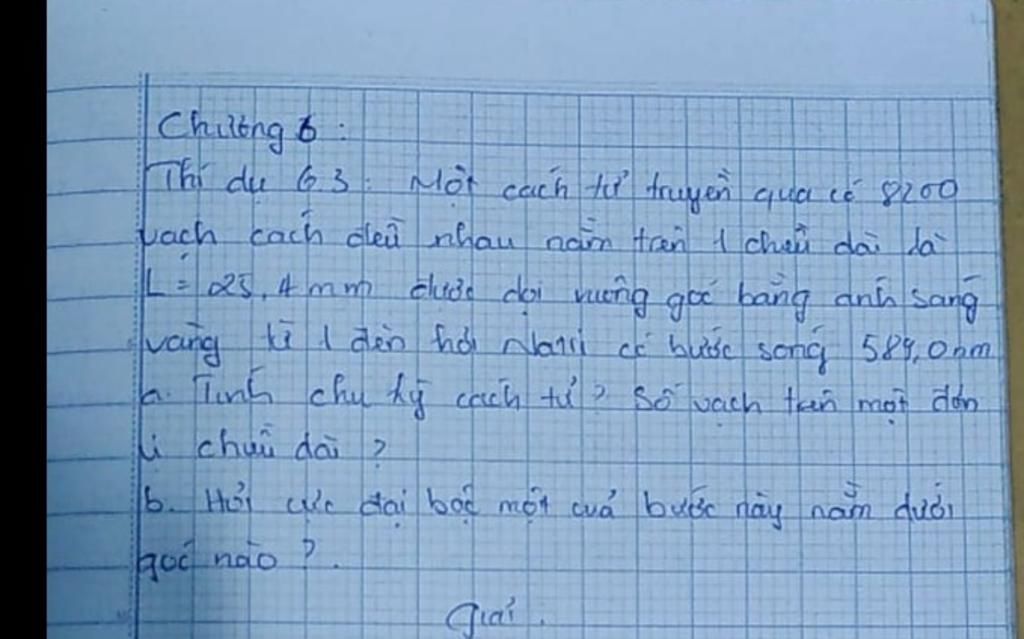 Chương 6 :
Thí dụ 6 3 : Một cách tử truyền qua có 8200
vạch cách đều nhau nằm trên 1 chiều dài là
L = 25,4 mm được dọi vuông góc bằng ánh sáng
vàng từ 1 đèn hơi Natri có bước sóng 589,0nm
a. Tính chu kỳ cách tử ? Số vạch trên một đơn
vị chiều dài ?
b. Hỏi cực đại bậc một của bước này nằm dưới
góc nào ?.
Giải.